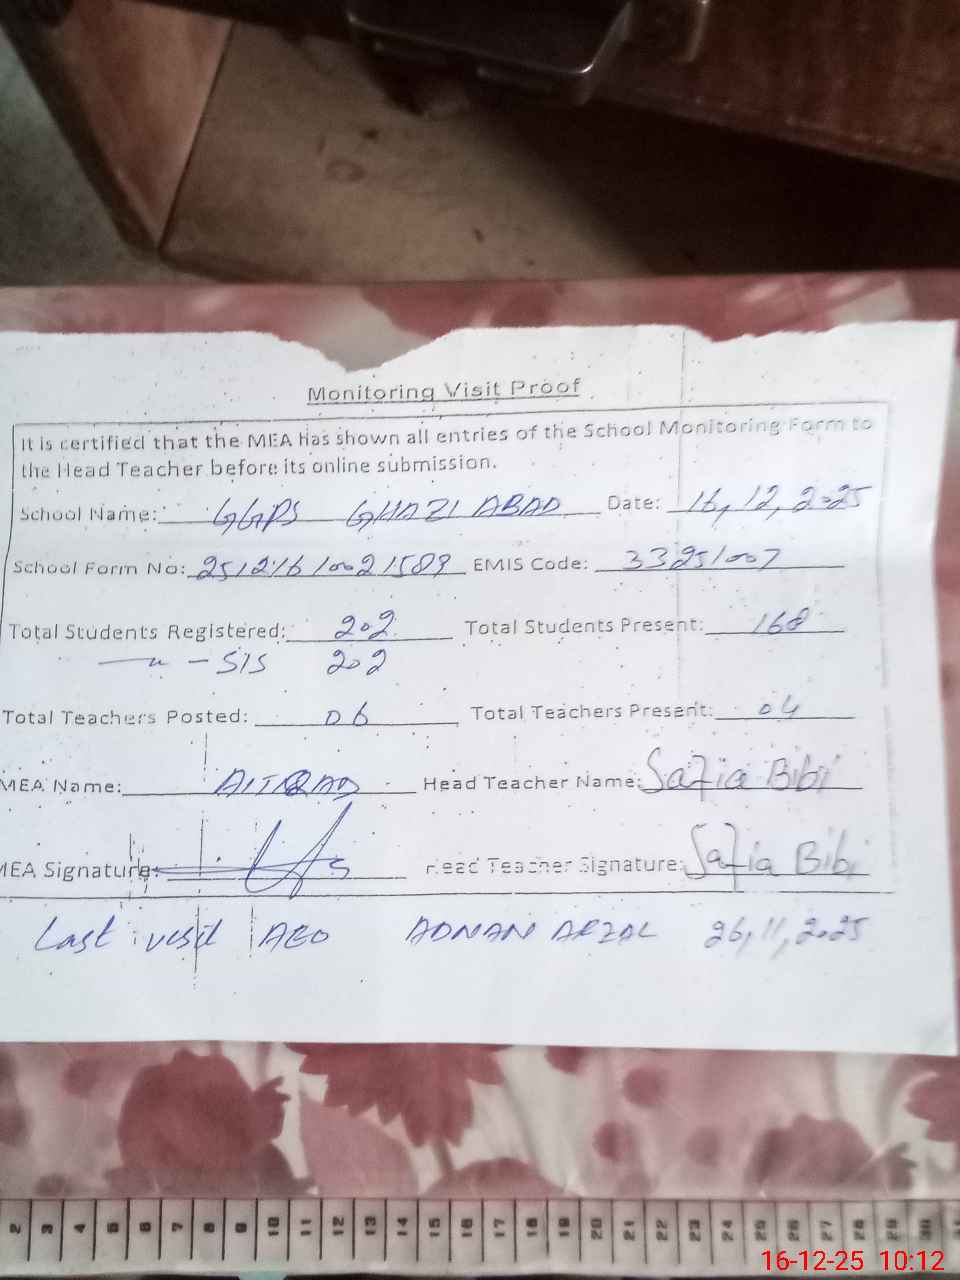 Monitoring Visit Proof
It is certified that the MEA has shown all entries of the School Monitoring Form to
the Head Teacher before its online submission.
School Name: GGPS GHAZI ABAD Date: 16, 12, 2025
School Form No: 25121610021589 EMIS Code: 33251007
Total Students Registered: 202 Total Students Present: 168
— " — SIS 202
Total Teachers Posted: 06 Total Teachers Present: 04
MEA Name: AITQAD Head Teacher Name: Safia Bibi
MEA Signature: Head Teacher Signature: Safia Bibi
Last visit AEO ADNAN AFZAL 26, 11, 2025
2 3 4 5 6 7 8 9 10 11 12 13 14 15 16 17 18 19 20 21 22 23 24 25 26 27 28 29 30
16-12-25 10:12